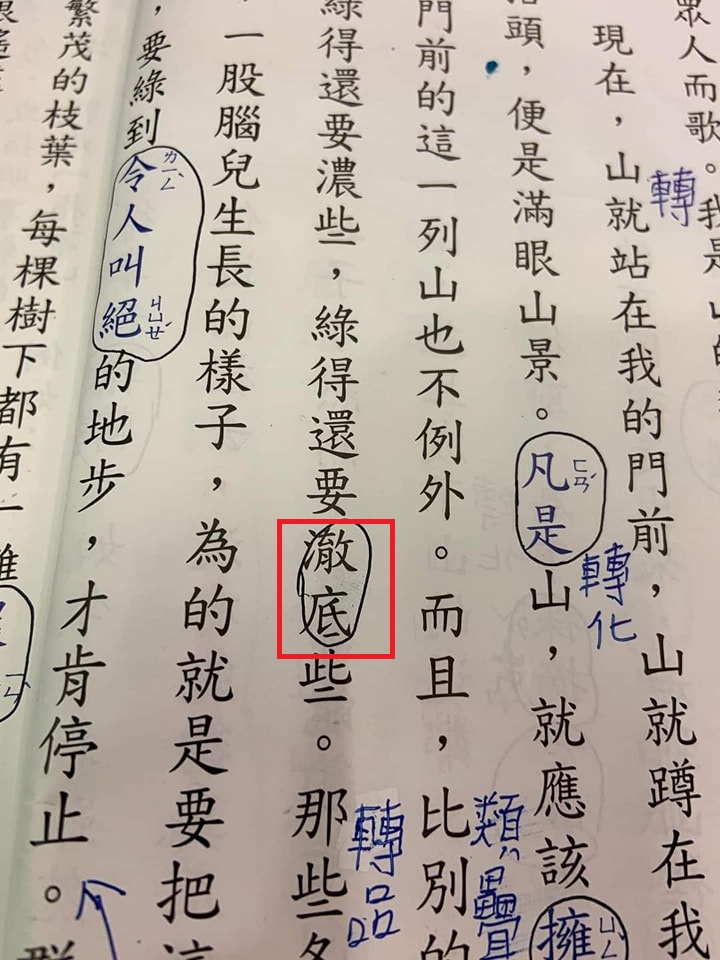 眾人而歌。我是山的
轉
現在，山就站在我的門前，山就蹲在我
轉化
抬頭，便是滿眼山景。凡是山，就應該擁
ㄈㄢˊ
類疊
門前的這一列山也不例外。而且，比別的
轉品
綠得還要濃些，綠得還要澈底些。那些
，一股腦兒生長的樣子，為的就是要把這
ㄌㄧㄥˋ
ㄐㄩㄝˊ
，要綠到令人叫絕的地步，才肯停止。群
繁茂的枝葉，每棵樹下都有一